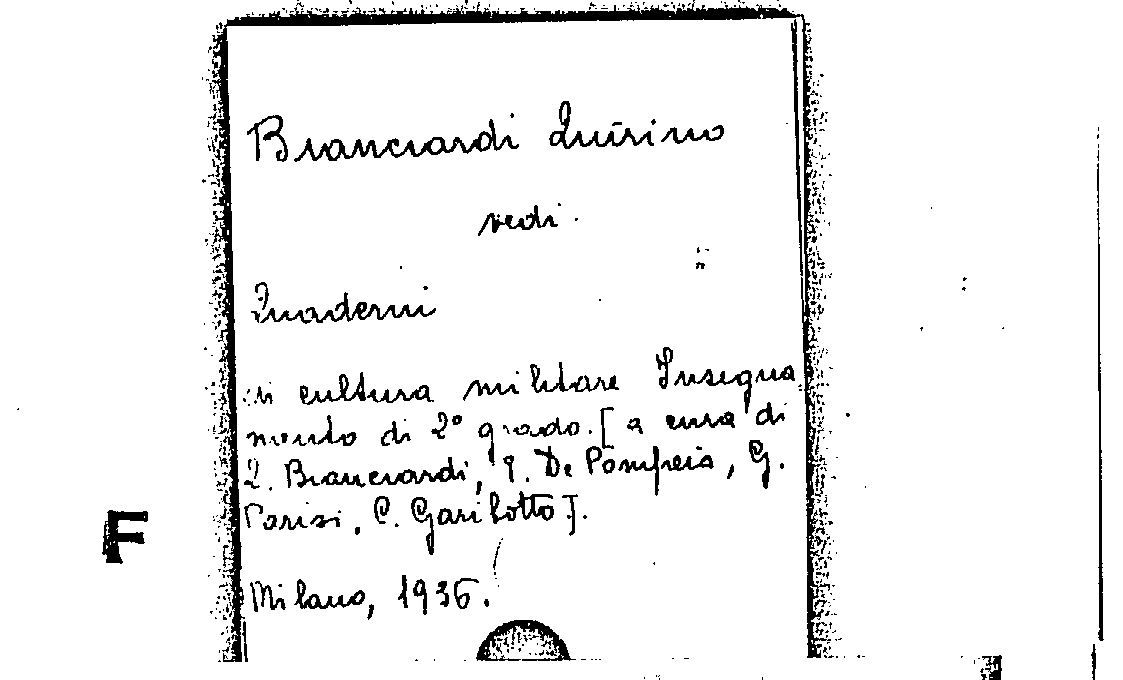 Branciardi Quirino
vedi
Quaderni
di cultura militare Insegna
mento di 2° grado. [ a cura di
Q. Branciardi, P. De Pompeis, G.
Parisi, C. Garibotto ].
F
Milano, 1936.